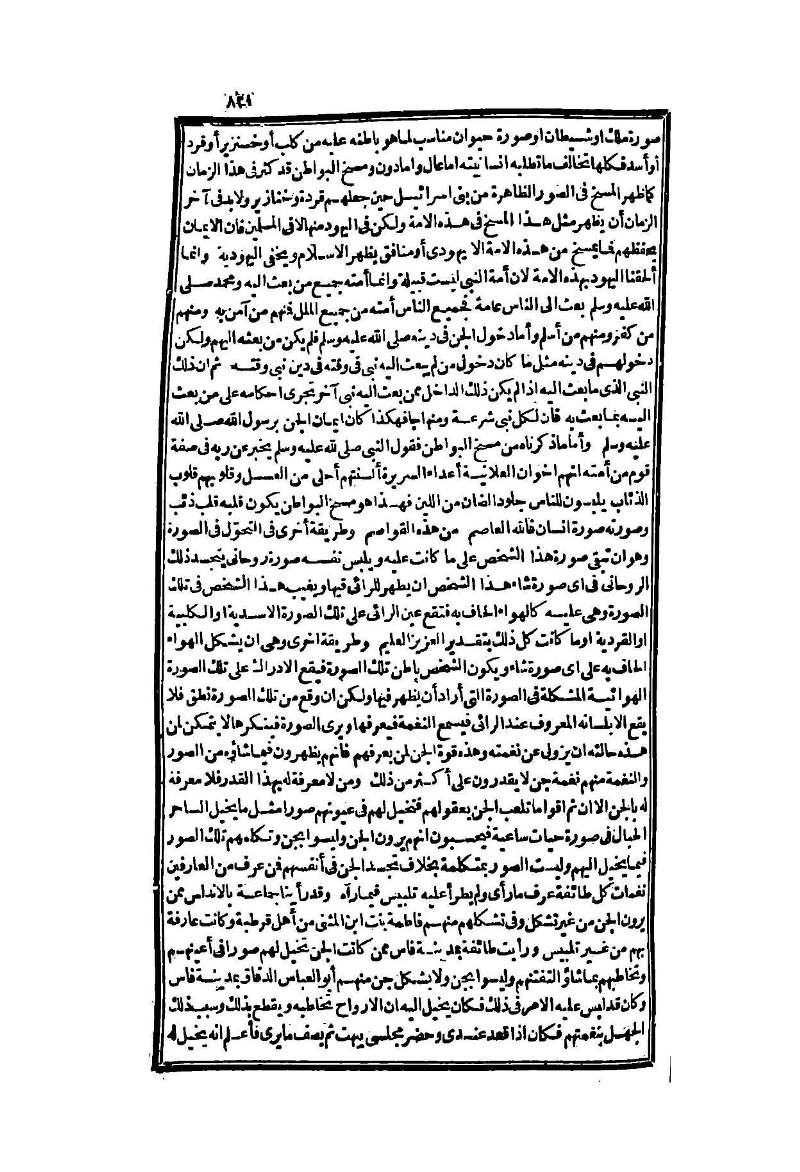 ٨٢١
صورة ملك او شيطان او صورة حيوان مناسب لما هو باطنه عليه من كلب أو خنزير أو قرد
أو أسد فكلها تخالف ما تطلبه انسانيته اما عال واما دون ومسخ البواطن قد كثر فى هذا الزمان
كما ظهر المسخ فى الصور الظاهرة من بنى اسرائيل حين جعلهم قردة وخنازير ولابد فى آخر
الزمان أن يظهر مثل هذا المسخ فى هذه الامة ولكن فى اليهود منها لا فى المسلمين فان الايمان
يحفظهم فما يمسخ من هذه الامة الا يهودى أو منافق يظهر الاسلام ويخفى اليهودية وانما
ألحقنا اليهود بهذه الامة لان أمة النبى ليست قبيلة وانما أمته جميع من بعث اليه ومحمد صلى
الله عليه وسلم بعث الى الناس عامة فجميع الناس أمته من جميع الملل فنهم من آمن به ومنهم
من كفر ومنهم من أسلم وأما دخول الجن فى دينه صلى الله عليه وسلم فلم يكن من بعثه اليهم ولكن
دخولهم فى دينه مثل ما كان دخول من لم يبعث اليه نبى فى وقته فى دين نبى وقته ثم ان ذلك
النبى الذى ما بعث اليه اذا لم يكن ذلك الداخل ممن بعث اليه نبى آخر تجرى احكامه على من بعث
اليه بما بعث به فان لكل نبى شرعة ومنهاجا فهكذا كان ايمان الجن برسول الله صلى الله
عليه وسلم وأما ماذكرناه من مسخ البواطن فقول النبى صلى الله عليه وسلم يخبر عن ربه فى صفة
قوم من أمته انهم اخوان العلانية أعداء السريرة ألسنتهم أحلى من العسل وقلوبهم قلوب
الذئاب يلبسون للناس جلود الضان من اللين فهذا هو مسخ البواطن يكون قلبه قلب ذئب
وصورته صورة انسان فالله العاصم من هذه القواصم وطريقة أخرى فى التحوّل فى الصورة
وهو ان تبقى صورة هذا الشخص على ما كانت عليه ويلبس نفسه صورة روحانى يتجسد ذلك
الروحانى فى اى صورة شاء هذا الشخص ان يظهر للرائى فيها ويغيب هذا الشخص فى تلك
الصورة وهى عليه كالهواء الحاف به فتقع عين الرائى على تلك الصورة الاسدية او الكلبية
او القردية او ما كانت كل ذلك بتقدير العزيز العليم وطريقة اخرى وهى ان يشكل الهواء
الحاف به على اى صورة شاء ويكون الشخص باطن تلك الصورة فيقع الادراك على تلك الصورة
الهوائية المشكلة فى الصورة التى أراد أن يظهر فيها ولكن ان وقع من تلك الصورة نطق فلا
يقع الا بلسانه المعروف عند الرائى فيسمع النغمة فيعرفها ويرى الصورة فينكرها لا يتمكن لمن
هذه حالته ان يزول عن نغمته وهذه قوة الجن لمن يعرفهم فانهم يظهرون فيما شاؤه من الصور
والنغمة منهم نغمة جن لا يقدرون على أكثر من ذلك ومن لا معرفة له بهذا القدر فلا معرفة
له بالجن الا ان ثم اقواما تلعب الجن بعقولهم فتخيل لهم فى عيونهم صورا مثل ما يخيل الساحر
الحبال فى صورة حيات ساعية فيحسبون انهم يرون الجن وليسوا بجن وتكلمهم تلك الصور
فيما يخيل اليهم وليست الصور بمتكلمة بخلاف تجسد الجن فى أنفسهم فن عرف من العارفين
نغمات كل طائفة عرف ما رأى ولم يطرأ عليه تلبيس فيما رآه وقد رأينا جماعة بالاندلس ممن
يرون الجن من غير تشكل وفى تشكلهم منهم فاطمة بنت ابن المثنى من أهل قرطبة وكانت عارفة
بهم من غير تلبيس ورأيت طائفة بمدينة فاس ممن كانت الجن تخيل لهم صورا فى أعينهم
وتخاطبهم بما شاؤا لتفتنهم وليسوا بجن ولا بشكل جن منهم أبو العباس الدقاق بمدينة فاس
وكان قد لبس عليه الامر فى ذلك فكان يخيل اليه ان الارواح تخاطبه ويقطع بذلك وسبب ذلك
الجهل بنغمتهم فكان اذا قعد عندى وحضر مجلسى يبهت ثم يصف ما يرى فأعلم انه يخيل له